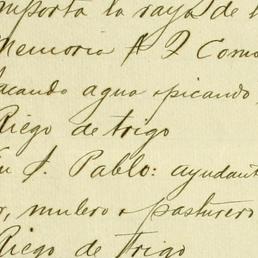 mporta la raya de l
Memoria A J Como
acando agua opicando,
Riego de trigo
En S. Pablo: ayudant
r, mulero o pasturero
Riego de Trigo